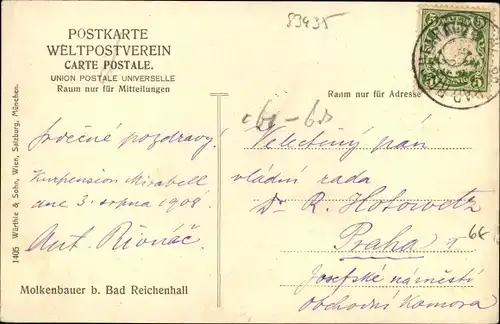 83435
POSTKARTE
WELTPOSTVEREIN
CARTE POSTALE.
UNION POSTALE UNIVERSELLE
Raum nur für Mitteilungen
Raum nur für Adresse
5 BAYERN 5
Srdečné pozdravy!
Kurpension Mirabell
dne 3. srpna 1908.
Ant. Řivnáč.
Velectěný pán
vládní rada
Dr. R. Hotowetz
Praha
Josefské náměstí
Obchodní Komora
Molkenbauer b. Bad Reichenhall
1405 Würthle & Sohn, Wien, Salzburg, München.